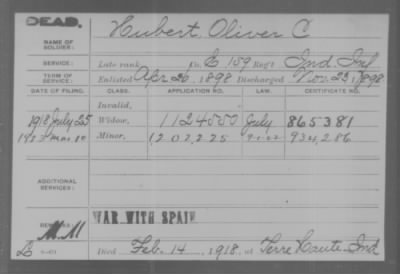 DEAD.
NAME OF SOLDIER: Hubert, Oliver C
SERVICE: Late rank Co. E, 159 Reg't Ind Inf
TERM OF SERVICE: Enlisted Apr 26, 1898 Discharged Nov. 23, 1898
DATE OF FILING. CLASS. APPLICATION NO. LAW. CERTIFICATE NO.
Invalid,
1918 July 25 Widow, 1124550 July 865381
Minor, 1,207,225 934,286
ADDITIONAL SERVICES:
WAR WITH SPAIN
MM
Died Feb. 14, 1918, at Terre Haute Ind